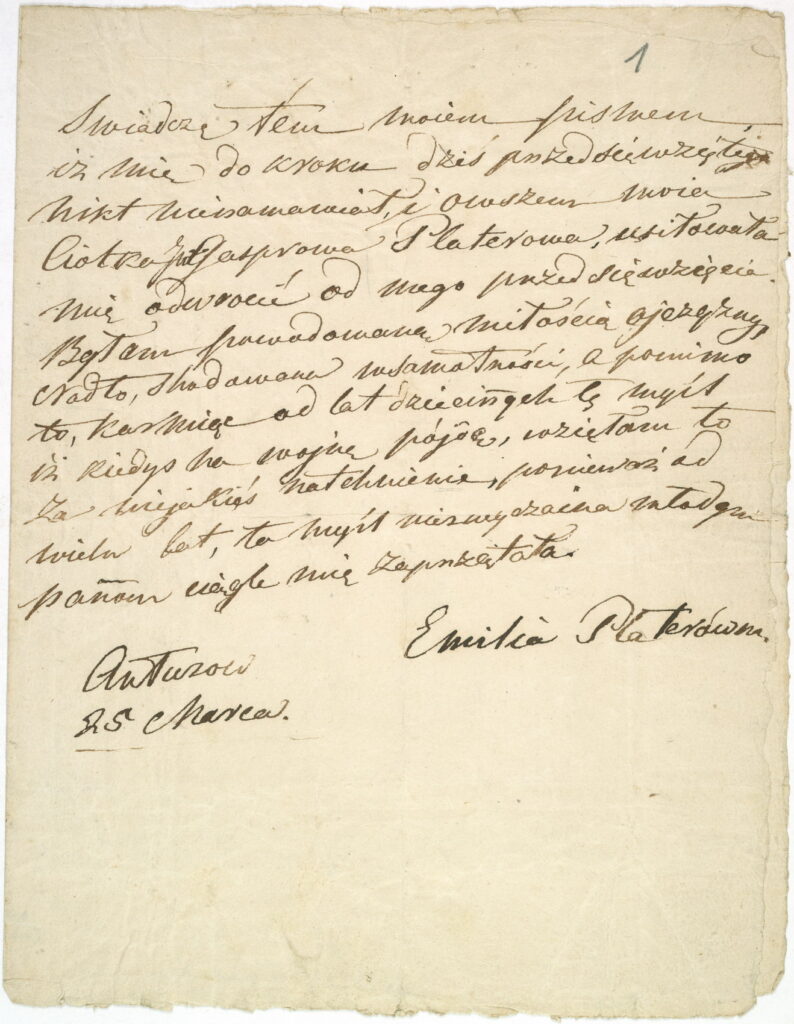 1
Swiadczę tém moiem pismem,
iż mię do kroku dziś przedsięwziętego
nikt nienamawiał, i owszem moia
Ciotka Gasprowa Platerowa, usiłowała
mię odwrócić od mego przedsięwzięcia.
Byłam powodowaną miłością ojczyzny,
Nadto, chodowana w samotności, a pomimo
to, karmiąc od lat dziecinnych tę myśl
iż kiedys na wojnę pójdę, wzięłam to
za niejakiéś natchnienie, ponieważ od
wielu lat, ta myśl niezwyczaina młodym
pannom ciągle mię zaprzątała.
Emilia Platerówna.
Antuzow
25 Marca.